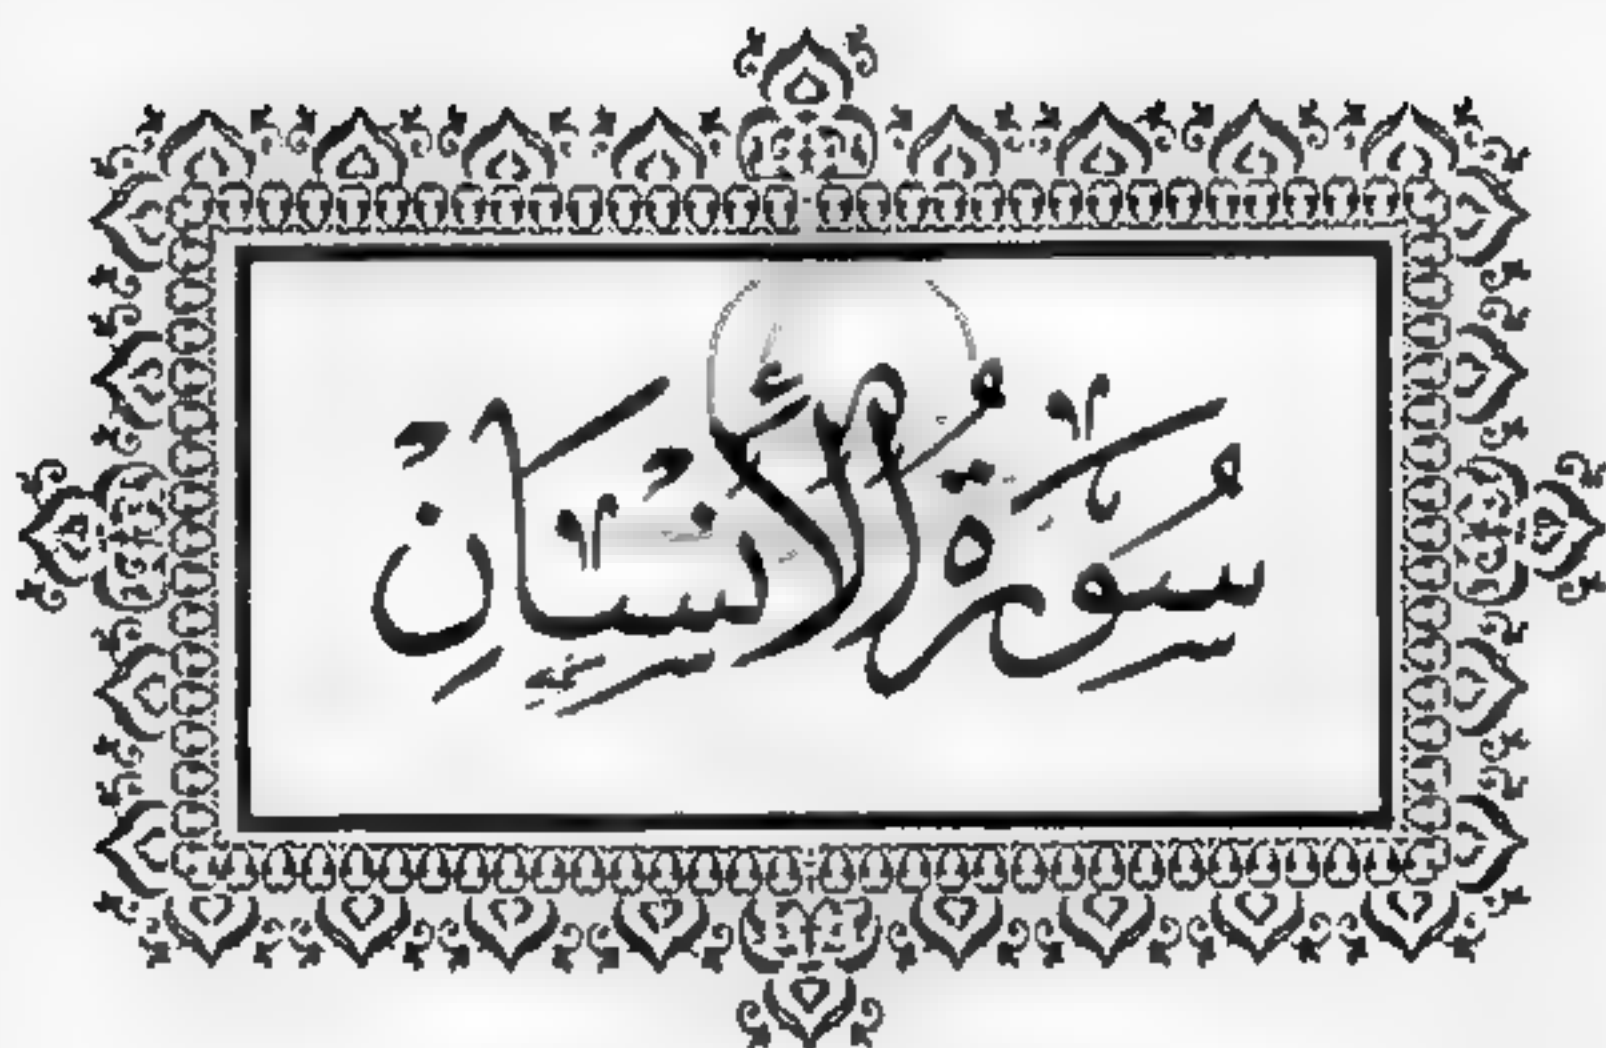 سُورَةُ الْأَنْسَانِ